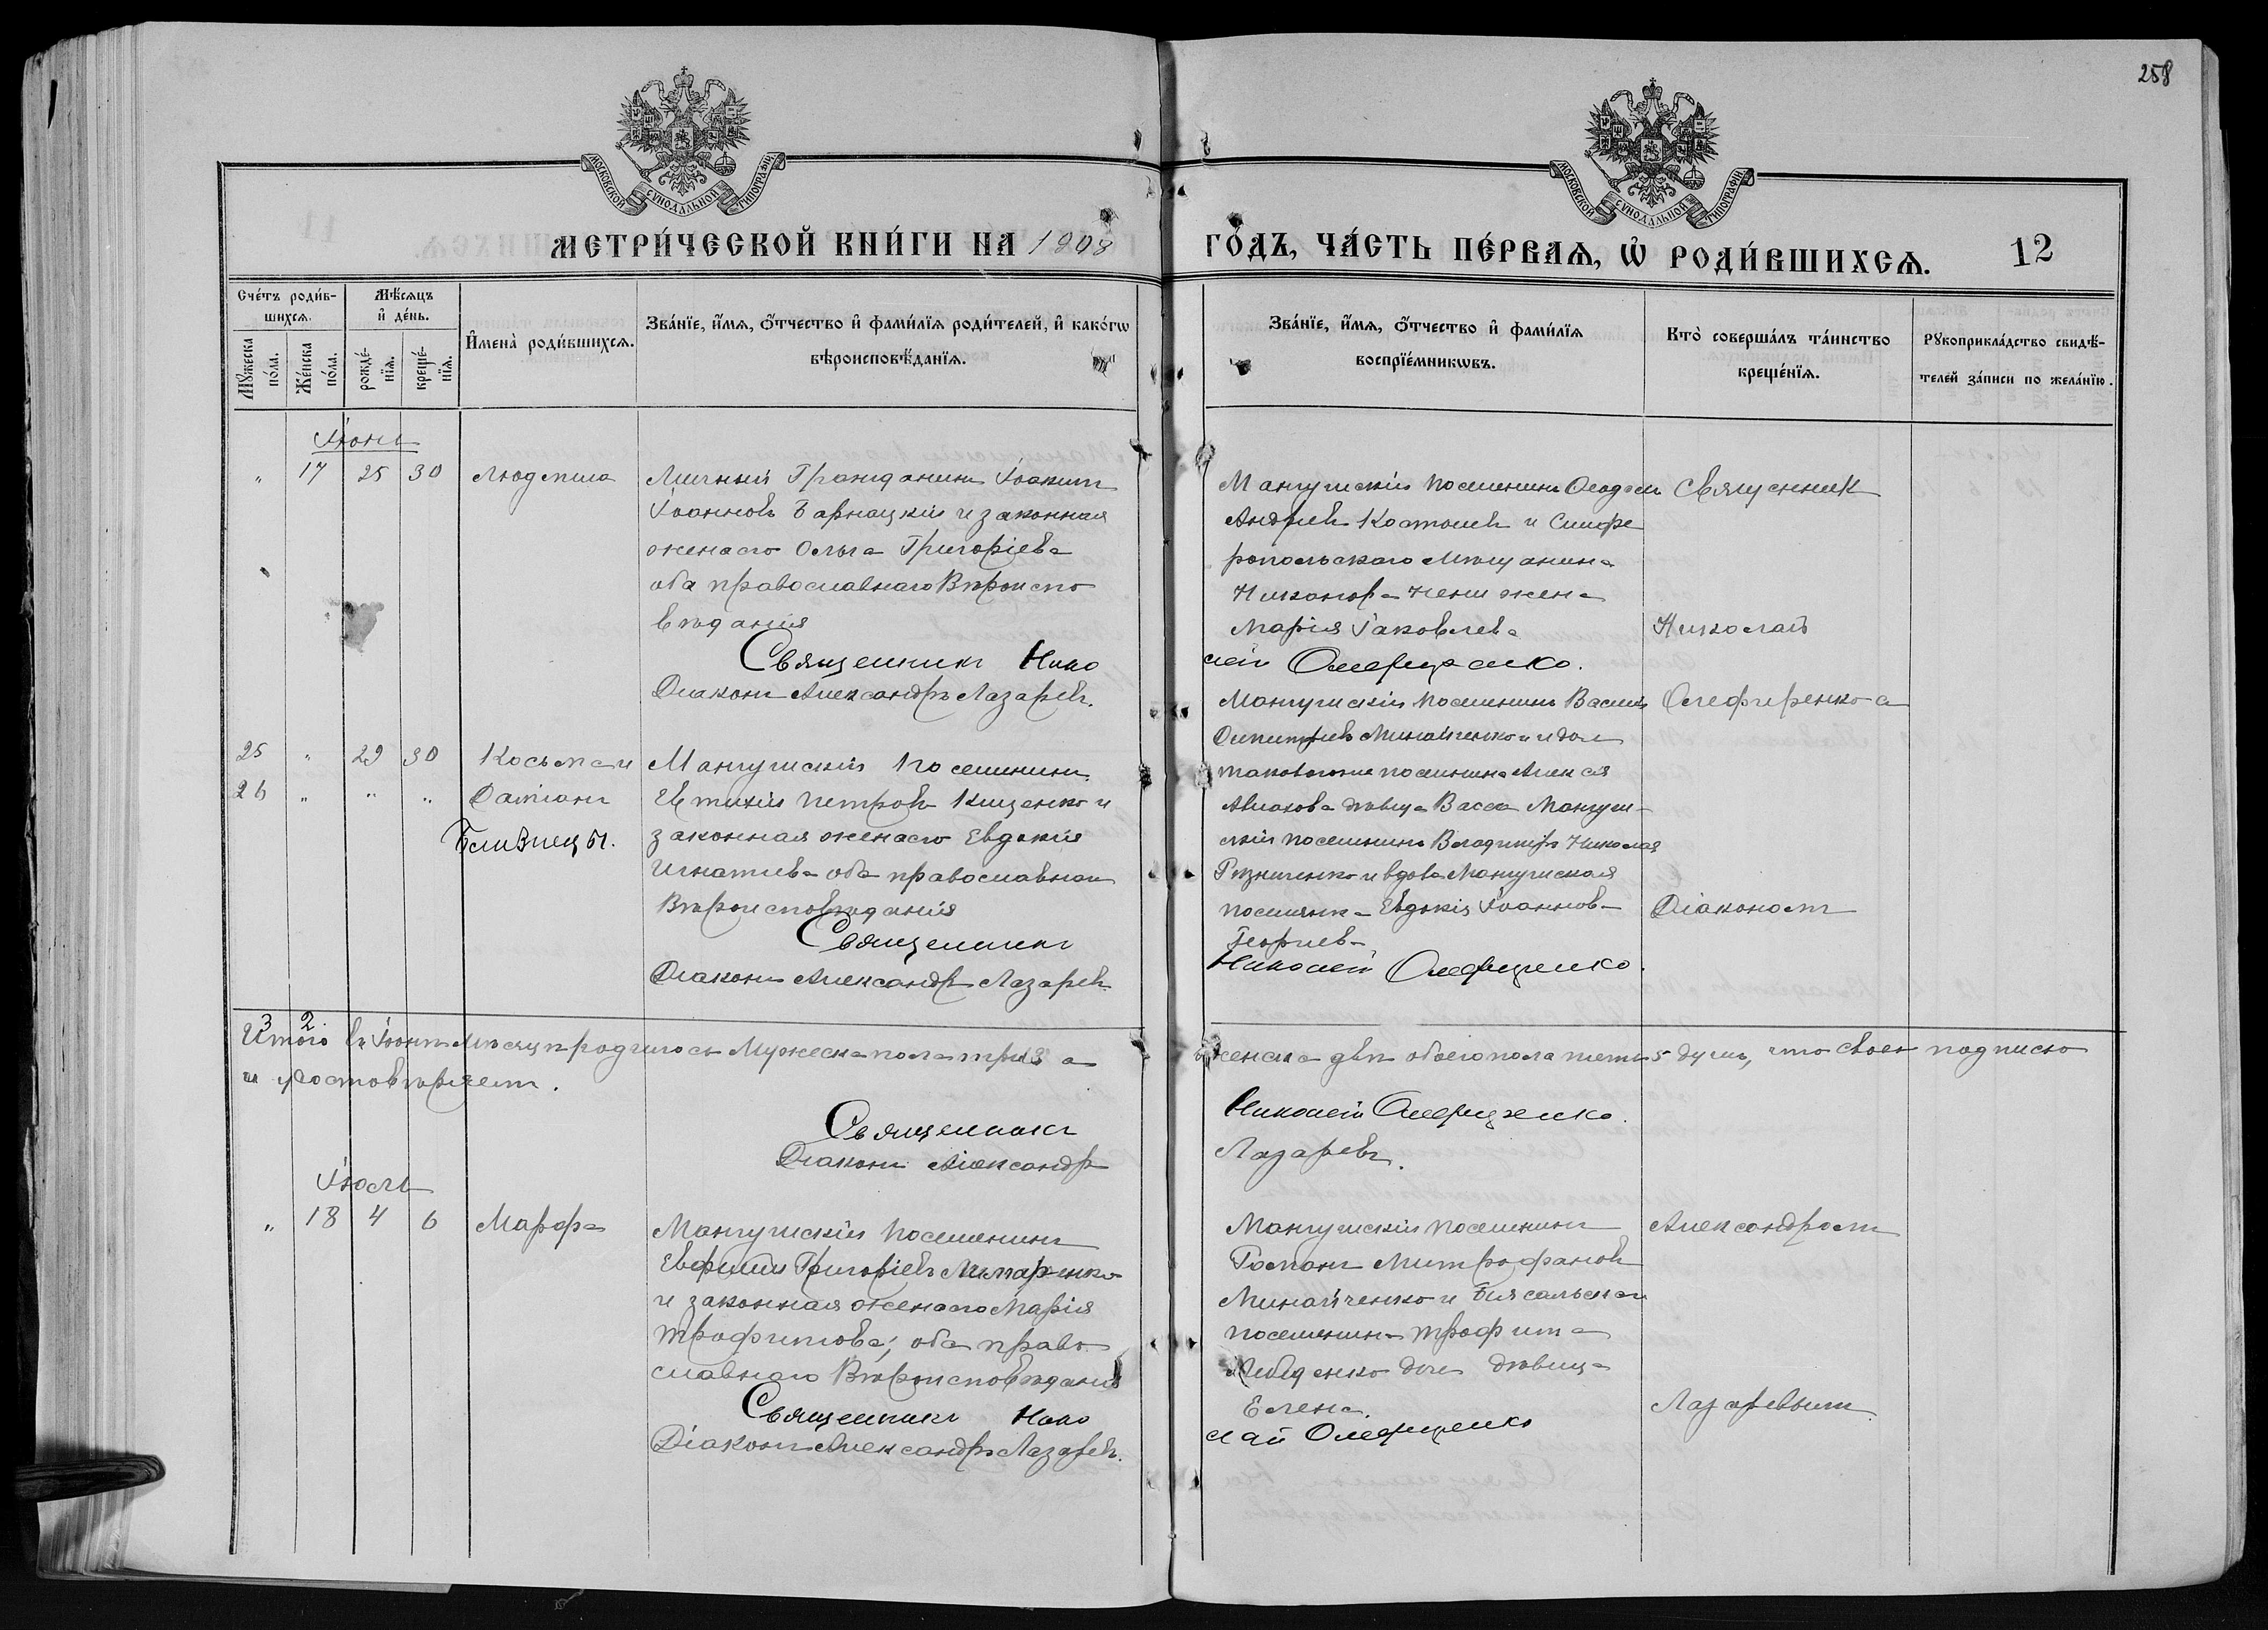 258
МОСКОВСКОЙ СУНОДАЛЬНОЙ ТИПОГРАФІИ
МОСКОВСКОЙ СУНОДАЛЬНОЙ ТИПОГРАФІИ
МЕТРИ́ЧЕСКОЙ КНИ́ГИ НА 1908
ГО́ДЪ, ЧА́СТЬ ПЕ́РВАѦ, Ѡ҆ РОДИ́ВШИХСѦ.
12
Сче́тъ роди́в-
шихсѧ.
Мѣ́сѧцъ
и҆ де́нь.
И҆мена̀ роди́вшихсѧ.
Зва́нїе, и҆́мѧ, ѻ҆́тчество и҆ фами́лїѧ роди́телей, и҆ како́гѡ
вѣроисповѣ́данїѧ.
Мꙋ́жеска
по́ла.
Же́нска
по́ла.
рожде́-
нїѧ.
креще́-
нїѧ.
Зва́нїе, и҆́мѧ, ѻ҆́тчество и҆ фами́лїѧ
воспрїе́мникѡвъ.
Кто̀ соверша́лъ та́инство
креще́нїѧ.
Рꙋкоприкла́дство свидѣ́-
телей за́писи по жела́нїю.
Іюнь
" 17 25 30 Людмила
Личный Гражданинъ Іоакимъ
Іоанновъ Барнацкій и законная
жена его Ольга Григоріева
оба православнаго Вѣроиспо
вѣданія
Священникъ Нико
Діаконъ Александръ Лазаревъ.
Мангушскій поселянинъ
Андреевъ и Симфе
ропольскаго мѣщанина
Никанора жена
Марія Іаковлева
лай Олефиренко.
Священникъ
Николай
Олефиренко съ
25 " 29 30 Косьма и
26 " " " Даміанъ
Близнецы.
Мангушскій поселянинъ
Евтихій Петровъ Кищенко и
законная жена его Евдокія
Игнатіева оба православнаго
Вѣроисповѣданія
Священникъ
Діаконъ Александръ Лазаревъ
Мангушскій поселянинъ Василій
Димитріевъ Минайченко и дочь
таковогоже поселянина Алексія
дѣвица Васса Мангуш-
скій поселянинъ Владиміръ Николаевъ
Резниченко и вдова Мангушская
поселянка Евдокія Іоаннова
Георгіева
Николай Олефиренко.
Діакономъ
3 2.
Итого въ Іюнѣ мѣсяцѣ родилось мужеска пола три 3 а
женска двѣ обоего пола пять 5 душъ, что своею подписью
и удостовѣряемъ.
Священникъ
Николай Олефиренко.
Діаконъ Александръ
Лазаревъ.
Іюль
" 18 4 6 Марфа
Мангушскій поселянинъ
Евфимій Григоріевъ Лимаренко
и законная жена его Марія
Трофимова; оба право
славнаго Вѣроисповѣданія
Священникъ Нико
Діаконъ Александръ Лазаревъ.
Мангушскій поселянинъ
Романъ Митрофановъ
Минайченко и Біясальскаго
поселянина Трофима
Лебеденко дочь дѣвица
Елена.
лай Олефиренко
Александромъ
Лазаревымъ